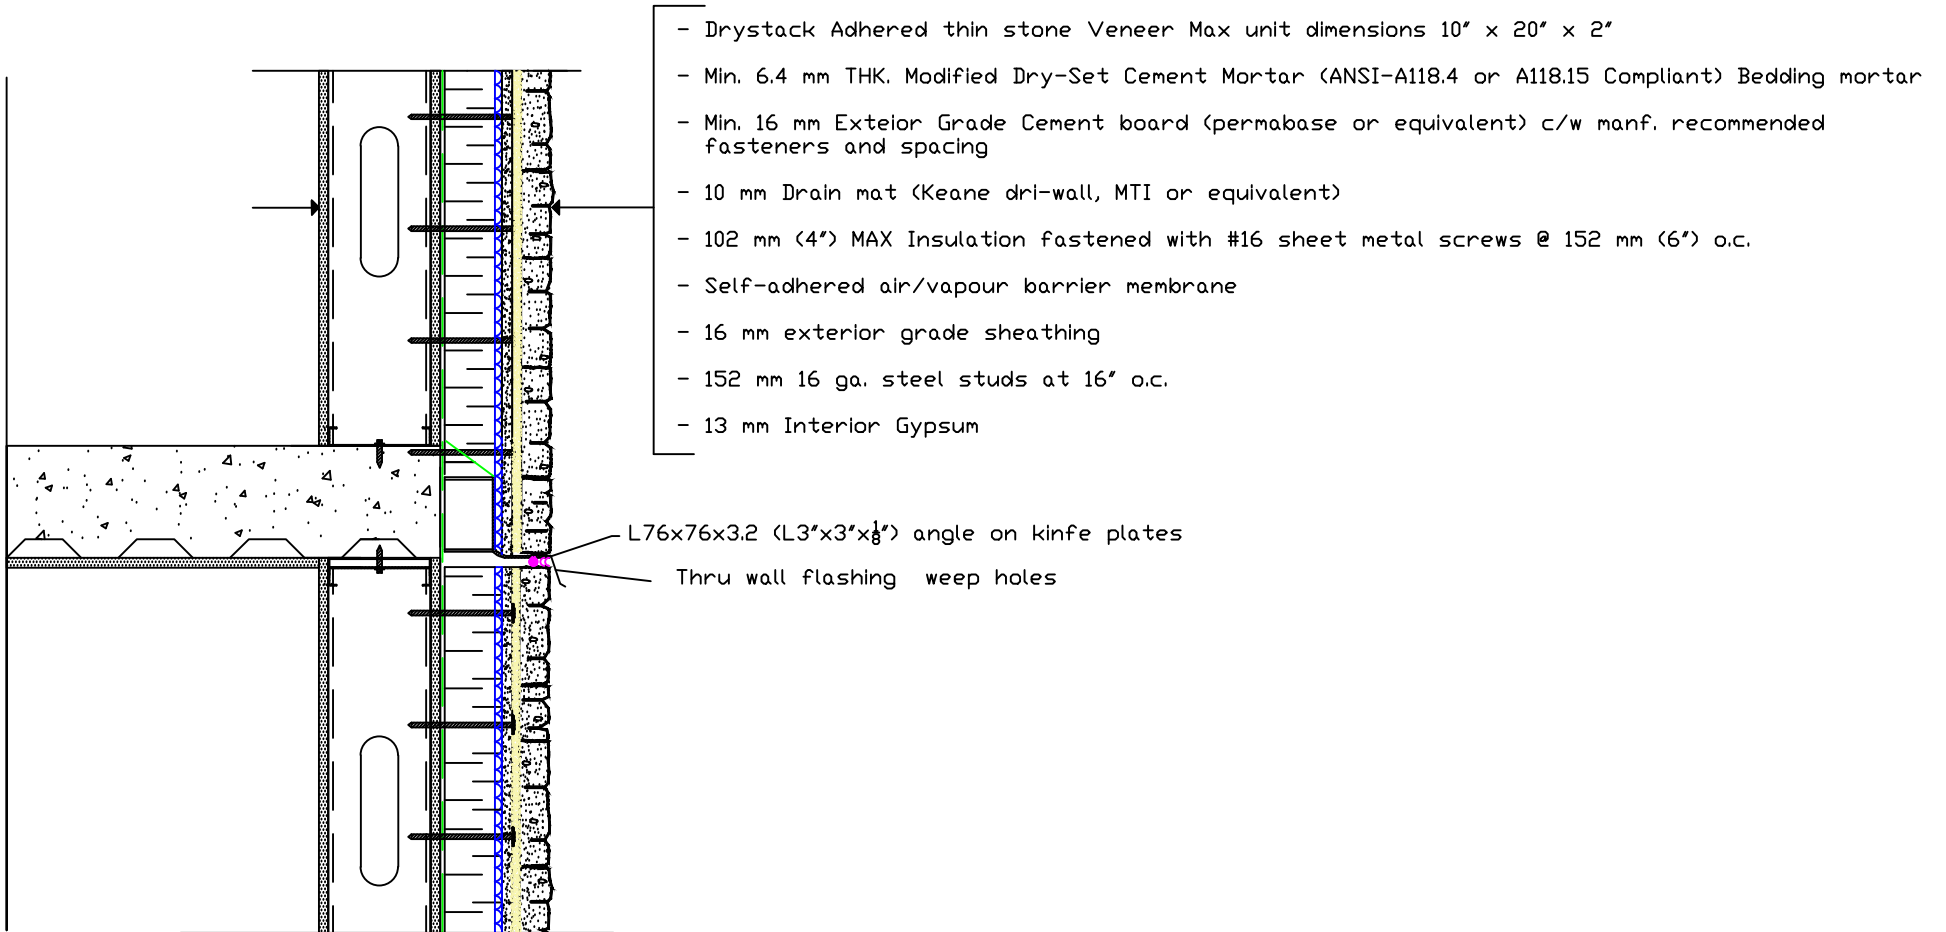 - Drystack Adhered thin stone Veneer Max unit dimensions 10" x 20" x 2"
- Min. 6.4 mm THK. Modified Dry-Set Cement Mortar (ANSI-A118.4 or A118.15 Compliant) Bedding mortar
- Min. 16 mm Exteior Grade Cement board (permabase or equivalent) c/w manf. recommended
fasteners and spacing
- 10 mm Drain mat (Keane dri-wall, MTI or equivalent)
- 102 mm (4") MAX Insulation fastened with #16 sheet metal screws @ 152 mm (6") o.c.
- Self-adhered air/vapour barrier membrane
- 16 mm exterior grade sheathing
- 152 mm 16 ga. steel studs at 16" o.c.
- 13 mm Interior Gypsum
L76x76x3.2 (L3"x3"x1/8") angle on kinfe plates
Thru wall flashing weep holes